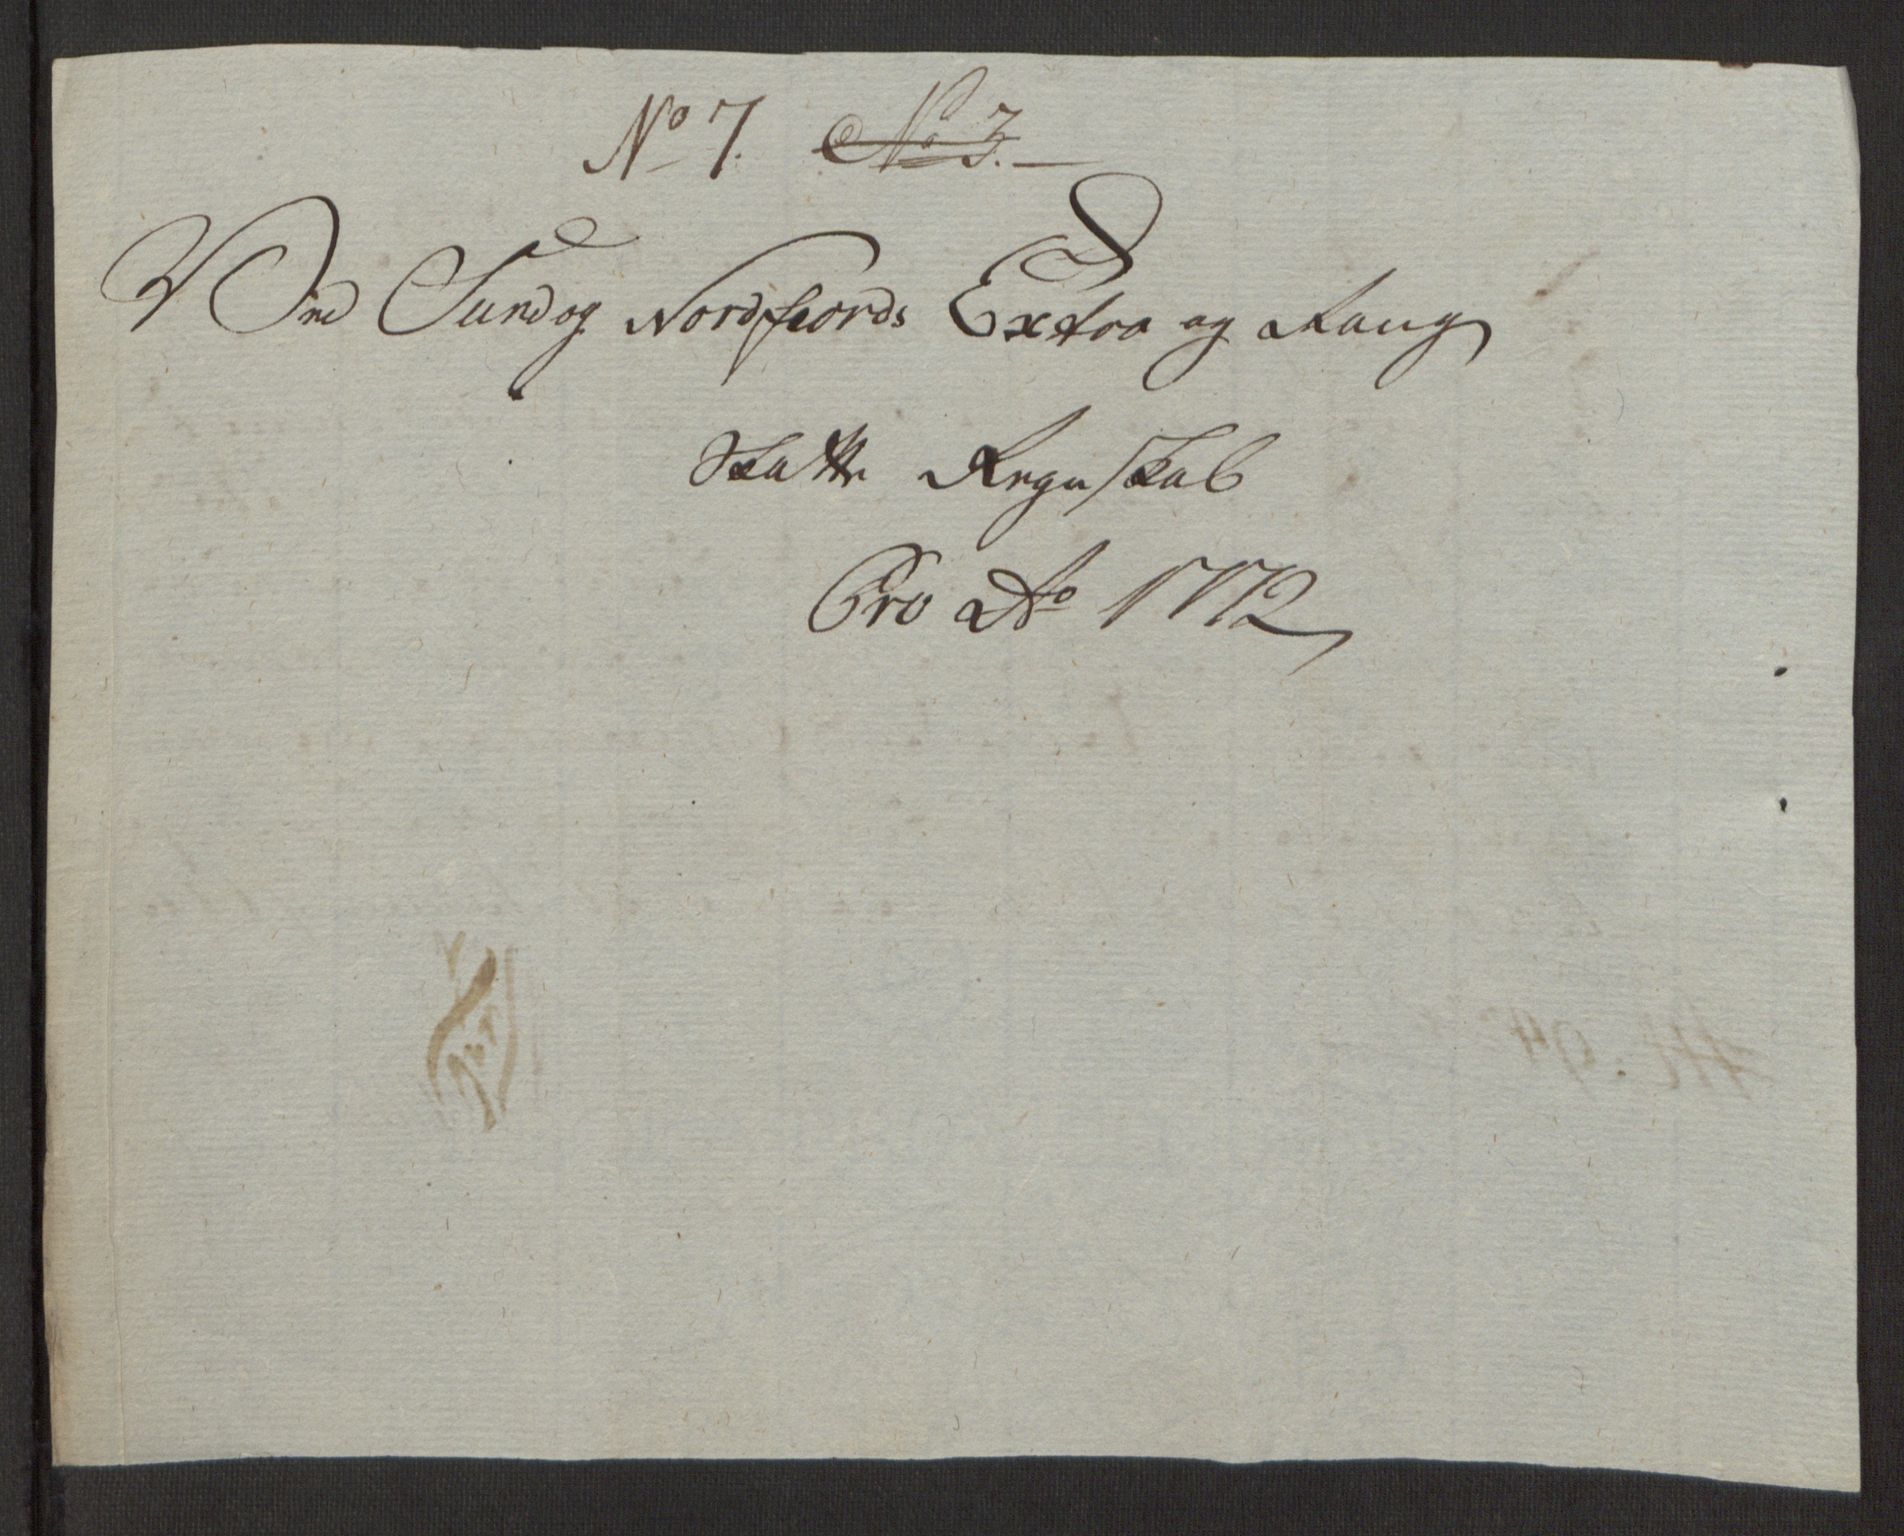 No 7. No 3.
Ved Sund og Nordfiords Extra og Rang
Skatte Regnskab
Pro Ao 1772